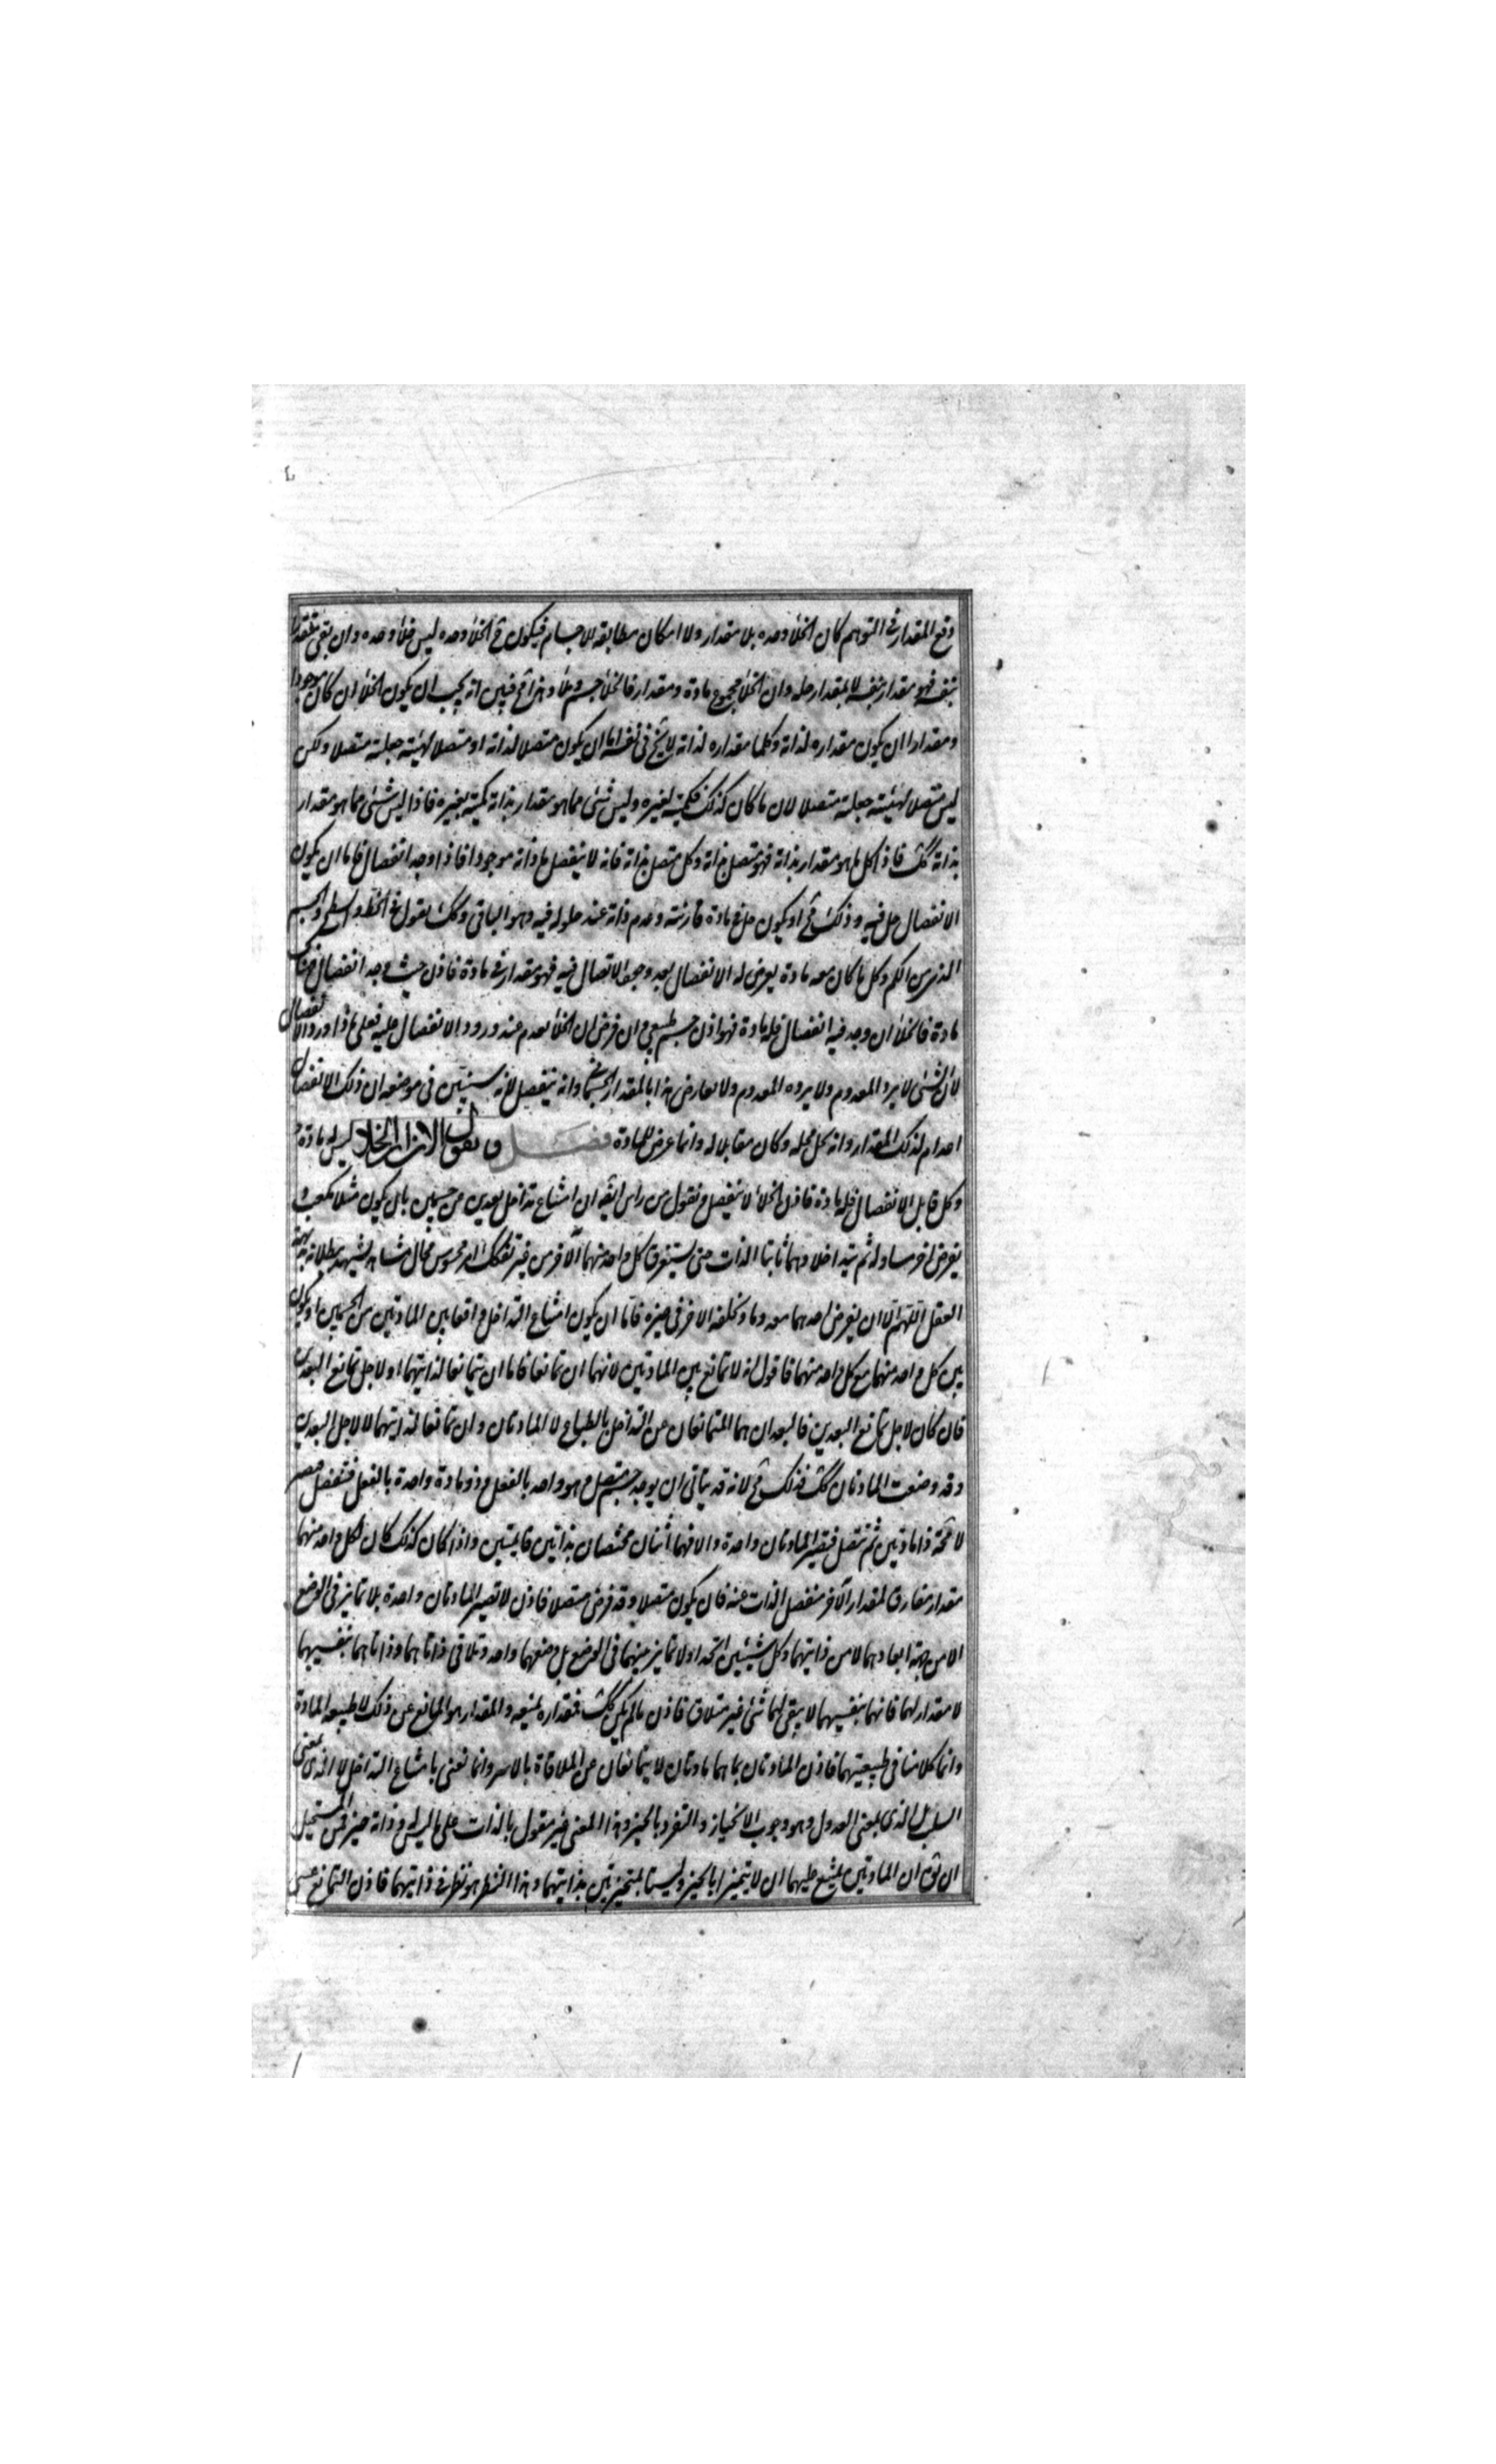 وقع المقدار فى التوهم كان الخلأ وحده بلا مقدار ولا امكان مطابقة لاجسام فيكون فى الخلأ وحده ليس خلأ وحده وان بقى متقدرا
بنفسه فهو مقدار بنفسه لا بمقدار حله وان الخلأ مجموع مادة ومقدار فالخلأ جسم وملأ وهذا مح فبين انه يجب ان يكون الخلأ ان كان موجودا
ومقدارا ان يكون مقداره لذاته وكلما مقداره لذاته لا يخ فى نفسه اما ان يكون متصلا لذاته او متصلا لهيئته جعلته متصلا ولكن
ليس متصلا لهيئته جعلته متصلا لان ما كان كذلك فكميته لغيره وليس شئ مما هو مقدار بذاته كميته بغيره فاذا ليس شئ مما هو مقدار
بذاته كك فاذا كل ما هو مقدار بذاته فهو متصل بذاته وكل متصل بذاته فانه لا ينفصل ما ذاته موجودا فاذا وجد انفصال فاما ان يكون
الانفصال حل فيه وذلك مح او يكون حل فى مادة قارنته وعدم ذاته عند حلوله فيه وهو الباقى وكك نقول فى الخط والسطح والجسم
الذى من الكم وكل ما كان معه مادة يعرض له الانفصال بعد وجود الاتصال فيه فهو مقدار فى مادة فاذن حيث وجد انفصال فهناك
مادة فالخلأ ان وجد فيه انفصال فله مادة فهو اذن جسم طبيعى وان فرض ان الخلأ يعدم عند ورود الانفصال عليه فعلى ماذا ورد الانفصال
لان الشئ لا يرد المعدوم ولا يرده المعدوم ولا يعارض هذا بالمقدار الجسمانى وانه ينفصل لانه سنبين فى موضعه ان ذلك الانفصال
اعدام لذلك المقدار وانه يحل محله وكان مقابلا له وانما عرض للمادة فصل ونقول الان ان الخلا ليس له مادة
وكل قابل الانفصال فله مادة فاذن الخلأ لا ينفصل ونقول من راس ايضا ان امتناع تداخل بعدين من جسمين بان يكون مثلا مكعب و
يعرض اخر مساو له ثم يتداخلا وهما ثابتا الذات حتى يستغرق كل واحد منهما الاخر من غير تفكك امر محسوس محال مشاهد يشهد ببطلانه بديهة
العقل اللهم الا ان يعرض احدهما معدوما ونخلفه الاخر فى حيزه فاما ان يكون امتناع التداخل واقعا بين المادتين من الجسمين او يكون
بين كل واحد منهما مع كل واحد منهما فاقول انه لا تمانع بين المادتين لانهما ان تمانعا فاما ان يتمانعا لذاتيهما او لاجل تمانع البعدين
فان كان لاجل تمانع البعدين فالبعدان هما المتمانعان عن التداخل بالطباع لا المادتان وان تمانعا لذاتيهما لا لاجل البعدين
وقد وضعت المادتان كك فذلك مح لانه قد يتاتى ان يوجد جسم متصل وهو واحد بالفعل وذو مادة واحدة بالفعل فتنفصل فيصير
لا محة ذا مادتين ثم تتصل فتصير المادتان واحدة والا فهما اثنان مختصان بذاتين قائمتين واذا كان كذلك كان لكل واحد منهما
مقدار مفارق لمقدار الاخر منفصل الذات عنه فان يكون متصلا وقد فرض متصلا فاذن لا تصير المادتان واحدة بلا تمايز فى الوضع
الا من جهة ابعادهما لا من ذاتيهما وكل شيئين اتحدا ولا تمايز بينهما فى الوضع بل وضعهما واحد وتلاقى ذاتاهما وذاتاهما بنفسيهما
لا مقدار لهما فانهما بنفسيهما لا يبقى لهما شئ غير متلاق فاذن ما لم يكن كك فمقداره لمنعه والمقدار هو المانع عن ذلك لا طبيعة المادة
وانما كلامنا فى طبيعتيهما فاذن المادتان بما هما مادتان لا يتمانعان عن الملاقاة بالاسر وانما نعنى بامتناع التداخل لا الذى بمعنى
السلب بل الذى بمعنى العدول وهو وجوب الانحياز والتفرد بالحيز وهذا المعنى غير مقول بالذات على ما ليس له فى ذاته حيز فمن المستحيل
ان نق ان المادتين يمتنع عليهما ان لا يتميزا بالحيز وليستا بمتحيزتين بذاتيهما وهذا النظر هو نظر فى ذاتيهما فاذن التمانع